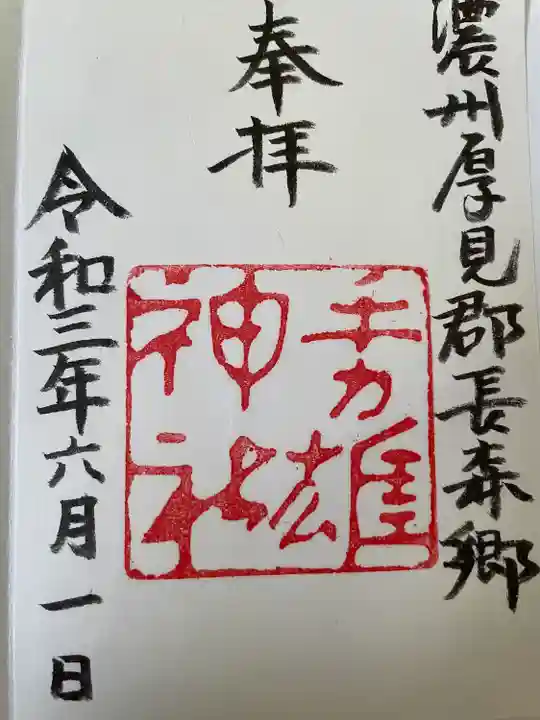 濃州厚見郡長森郷
奉拝
手力雄
神社
令和三年六月一日